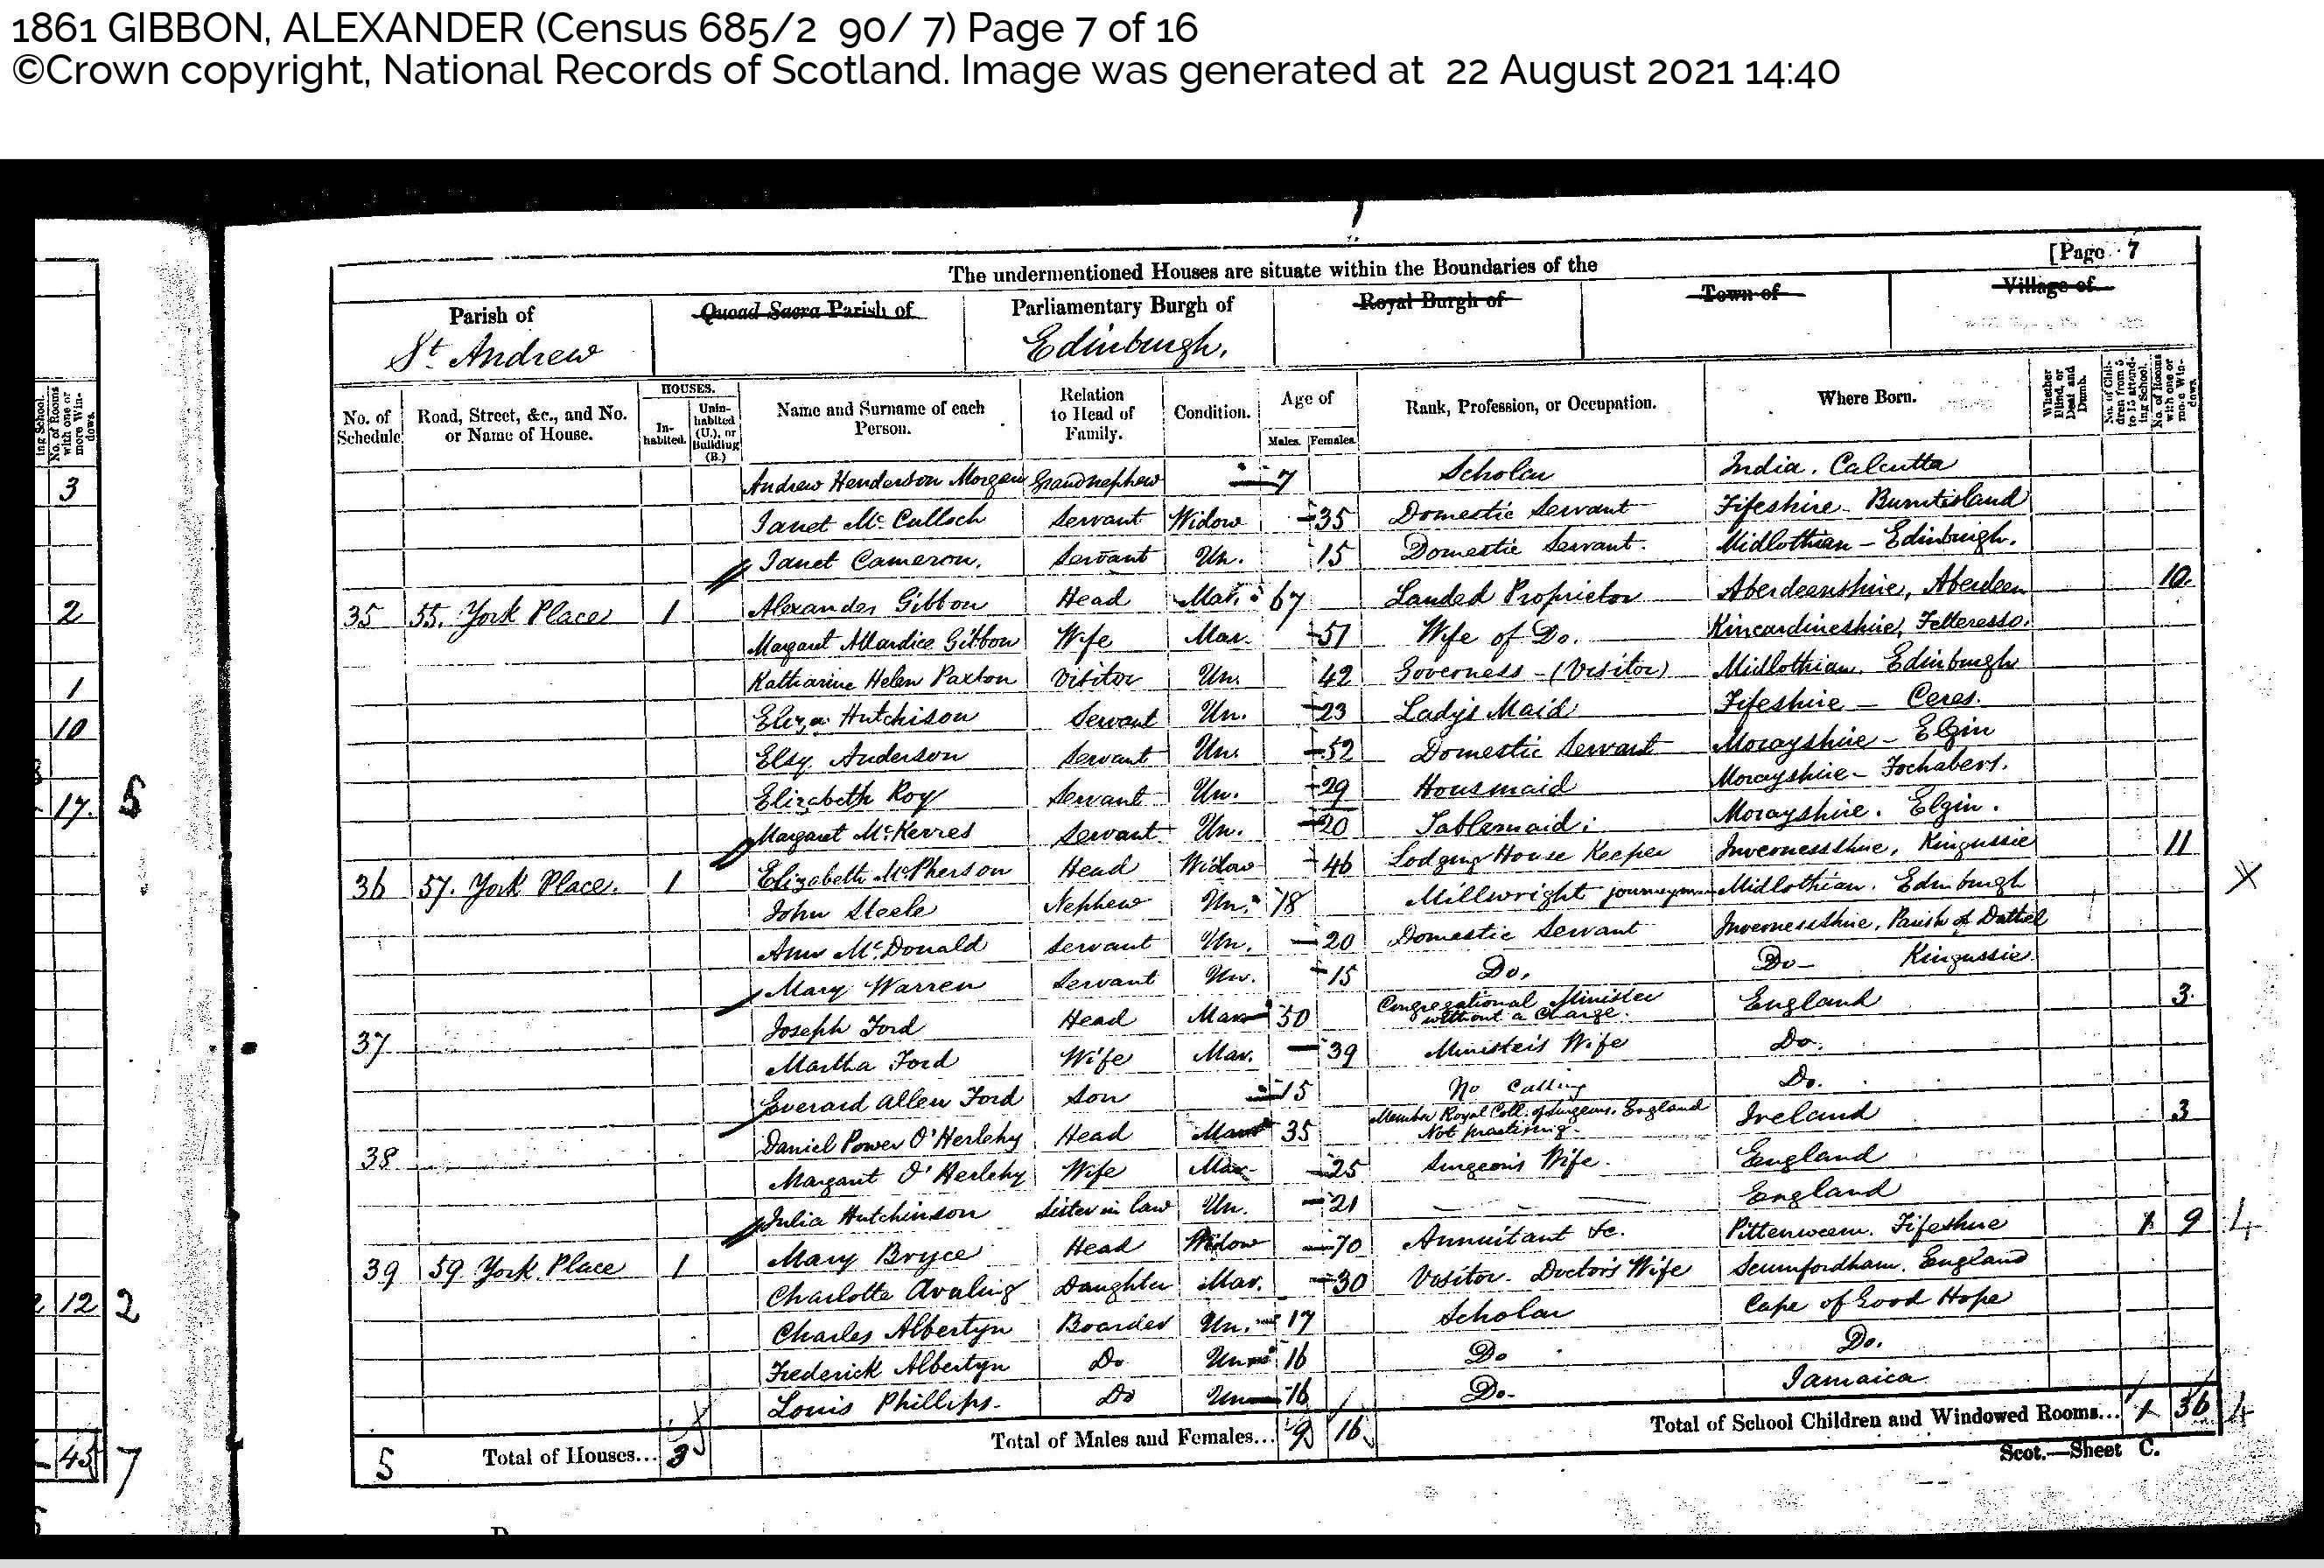 1861 GIBBON, ALEXANDER (Census 685/2 90/ 7) Page 7 of 16
©Crown copyright, National Records of Scotland. Image was generated at 22 August 2021 14:40
[Page 7
The undermentioned Houses are situate within the Boundaries of the
Parish of Quoad Sacra Parish of Parliamentary Burgh of Royal Burgh of Town of Village of
St. Andrew Edinburgh.
No. of Schedule Road, Street, &c., and No. or Name of House. HOUSES. Inhabited. Uninhabited (U.), or Building (B.) Name and Surname of each Person. Relation to Head of Family. Condition. Age of Males. Females. Rank, Profession, or Occupation. Where Born. Whether Blind, or Deaf and Dumb. No. of Children from 5 to 15 attending School. No. of Rooms with one or more Windows.
Andrew Henderson Morgan Grandnephew 7 Scholar India. Calcutta
Janet McCulloch Servant Widow 35 Domestic Servant Fifeshire Burntisland
Janet Cameron. Servant Un. 15 Domestic Servant. Midlothian - Edinburgh.
35 55. York Place 1 Alexander Gibbon Head Mar. 67 Landed Proprietor Aberdeenshire, Aberdeen 10.
Margaret Allardice Gibbon Wife Mar. 51 Wife of Do. Kincardineshire, Fetteresso.
Katharine Helen Paxton Visitor Un. 42 Governess - (Visitor) Midlothian. Edinburgh
Eliza Hutchison Servant Un. 23 Lady's Maid Fifeshire - Ceres.
Elsy Anderson Servant Un. 52 Domestic Servant Morayshire - Elgin
Elizabeth Roy Servant Un. 29 Housmaid Morayshire - Fochabers.
Margaret McKerres Servant Un. 20 Tablemaid. Morayshire. Elgin.
36 57. York Place. 1 Elizabeth McPherson Head Widow 46 Lodging House Keeper Invernessshire, Kingussie 11
John Steele Nephew Un. 18 Millwright journeyman Midlothian. Edinburgh
Ann McDonald Servant Un. 20 Domestic Servant Invernessshire, Parish of Duthil
Mary Warren Servant Un. 15 Do. Do - Kingussie.
37 Joseph Ford Head Mar 50 Congregational Minister without a Charge. England 3.
Martha Ford Wife Mar. 39 Minister's Wife Do.
Everard Allen Ford Son 15 No Calling Do.
38 Daniel Power O'Herlehy Head Mar 35 Member Royal Coll. of Surgeons. England Not practising. Ireland 3
Margaret O'Herlehy Wife Mar 25 Surgeon's Wife. England
Julia Hutchinson Sister in law Un. 21 England
39 59 York Place 1 Mary Bryce Head Widow 70 Annuitant &c. Pittenweem. Fifeshire 1 9 4
Charlotte Avaling Daughter Mar. 30 Visitor. Doctor's Wife England
Charles Albertyn Boarder Un. 17 Scholar Cape of Good Hope
Frederick Albertyn Do Un 16 Do Do.
Louis Phillips. Do Un 16 Do. Jamaica
5 Total of Houses... 3 Total of Males and Females... 9 16 Total of School Children and Windowed Rooms... 1 36 4
Scot.—Sheet C.
ing School.
No. of Rooms with one or more Windows.
3
2
1
10
17. 5
12 2
45 7